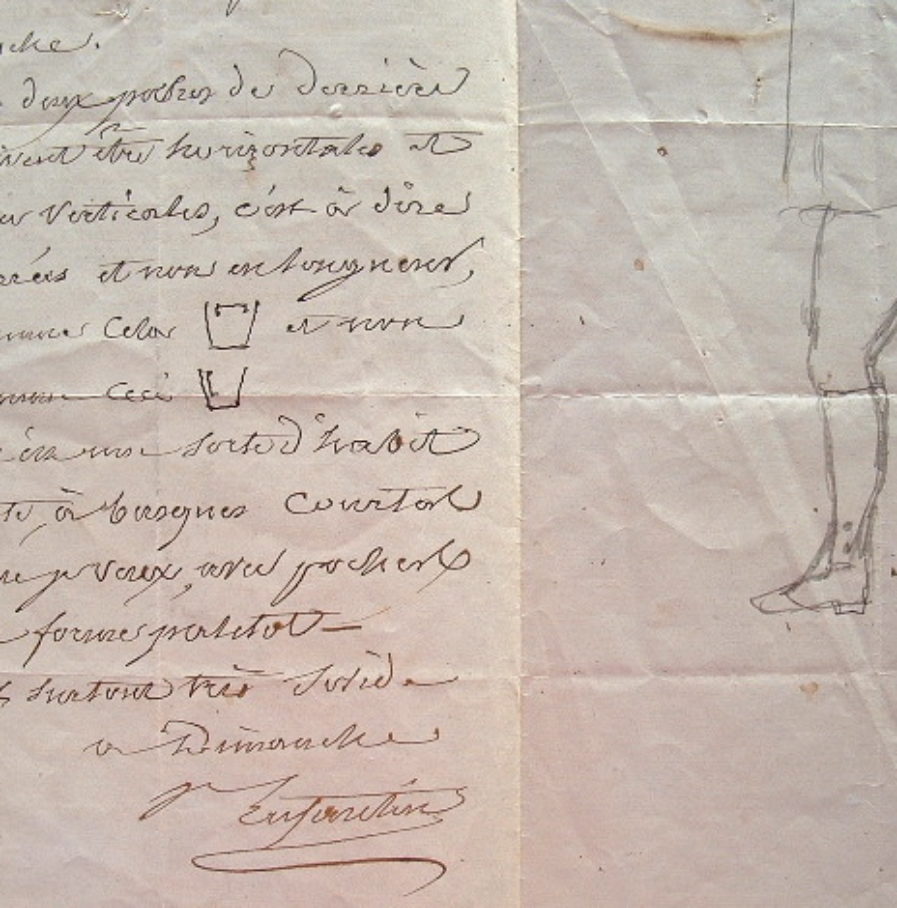 che.
deux poches de derrière
ivent être horizontales et
verticales, c'est à dire
rrées et non en longueur,
mme cela et non
mme ceci
une sorte d'habit
à basques courtes
je veux, avec poches
forme paletot —
surtout très solide
a Dimanche